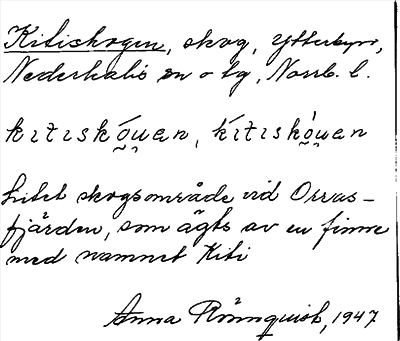 Kitiskogen, skog, Ytterbyn,
Nederkalix sn o tg, Norrb. l.
kitiskóu̯an, kítiskò̯u̯an
Litet skogsområde vid Orras-
fjärden, som ägts av en finne
med namnet Kiti
Anna Rönnquist, 1947